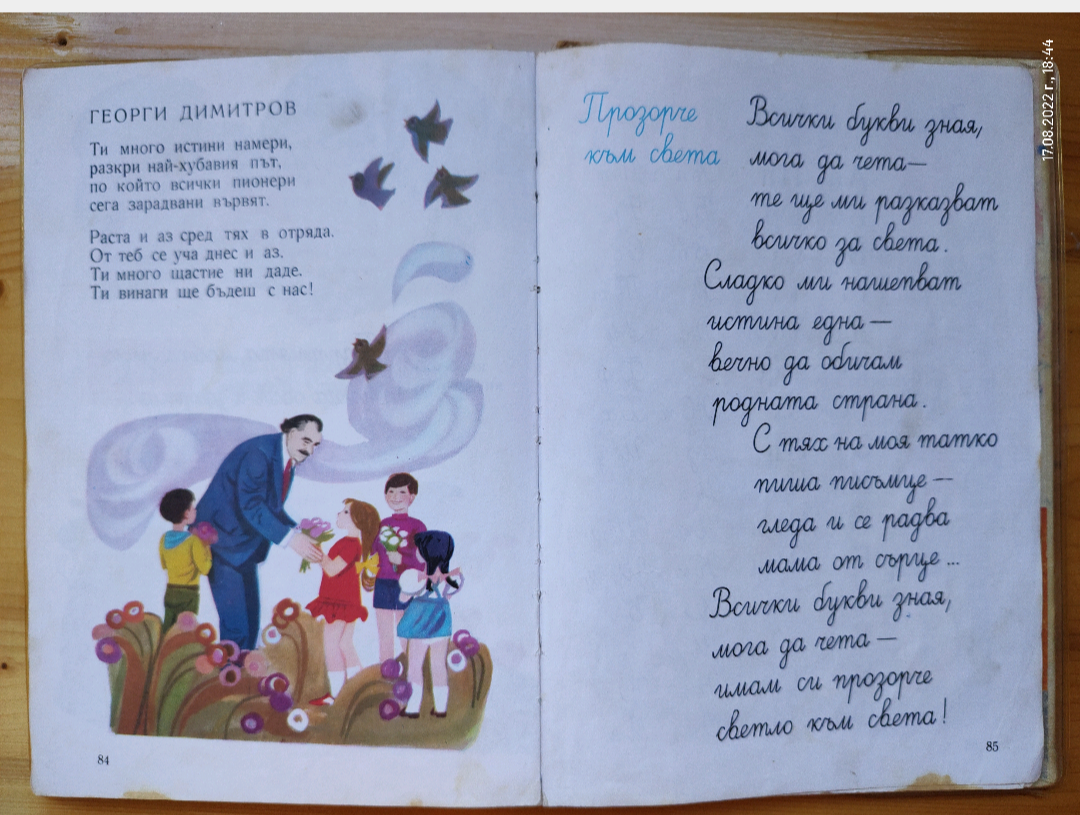 ГЕОРГИ ДИМИТРОВ
Ти много истини намери,
разкри най-хубавия път,
по който всички пионери
сега зарадвани вървят.
Раста и аз сред тях в отряда.
От теб се уча днес и аз.
Ти много щастие ни даде.
Ти винаги ще бъдеш с нас!
84
Прозорче
към света
Всички букви зная,
мога да чета—
те ще ми разказват
всичко за света.
Сладко ми нашепват
истина една —
вечно да обичам
родната страна.
С тях на моя татко
пиша писъмце —
гледа и се радва
мама от сърце ...
Всички букви зная,
мога да чета —
имам си прозорче
светло към света!
85
17.08.2022 г., 18:44